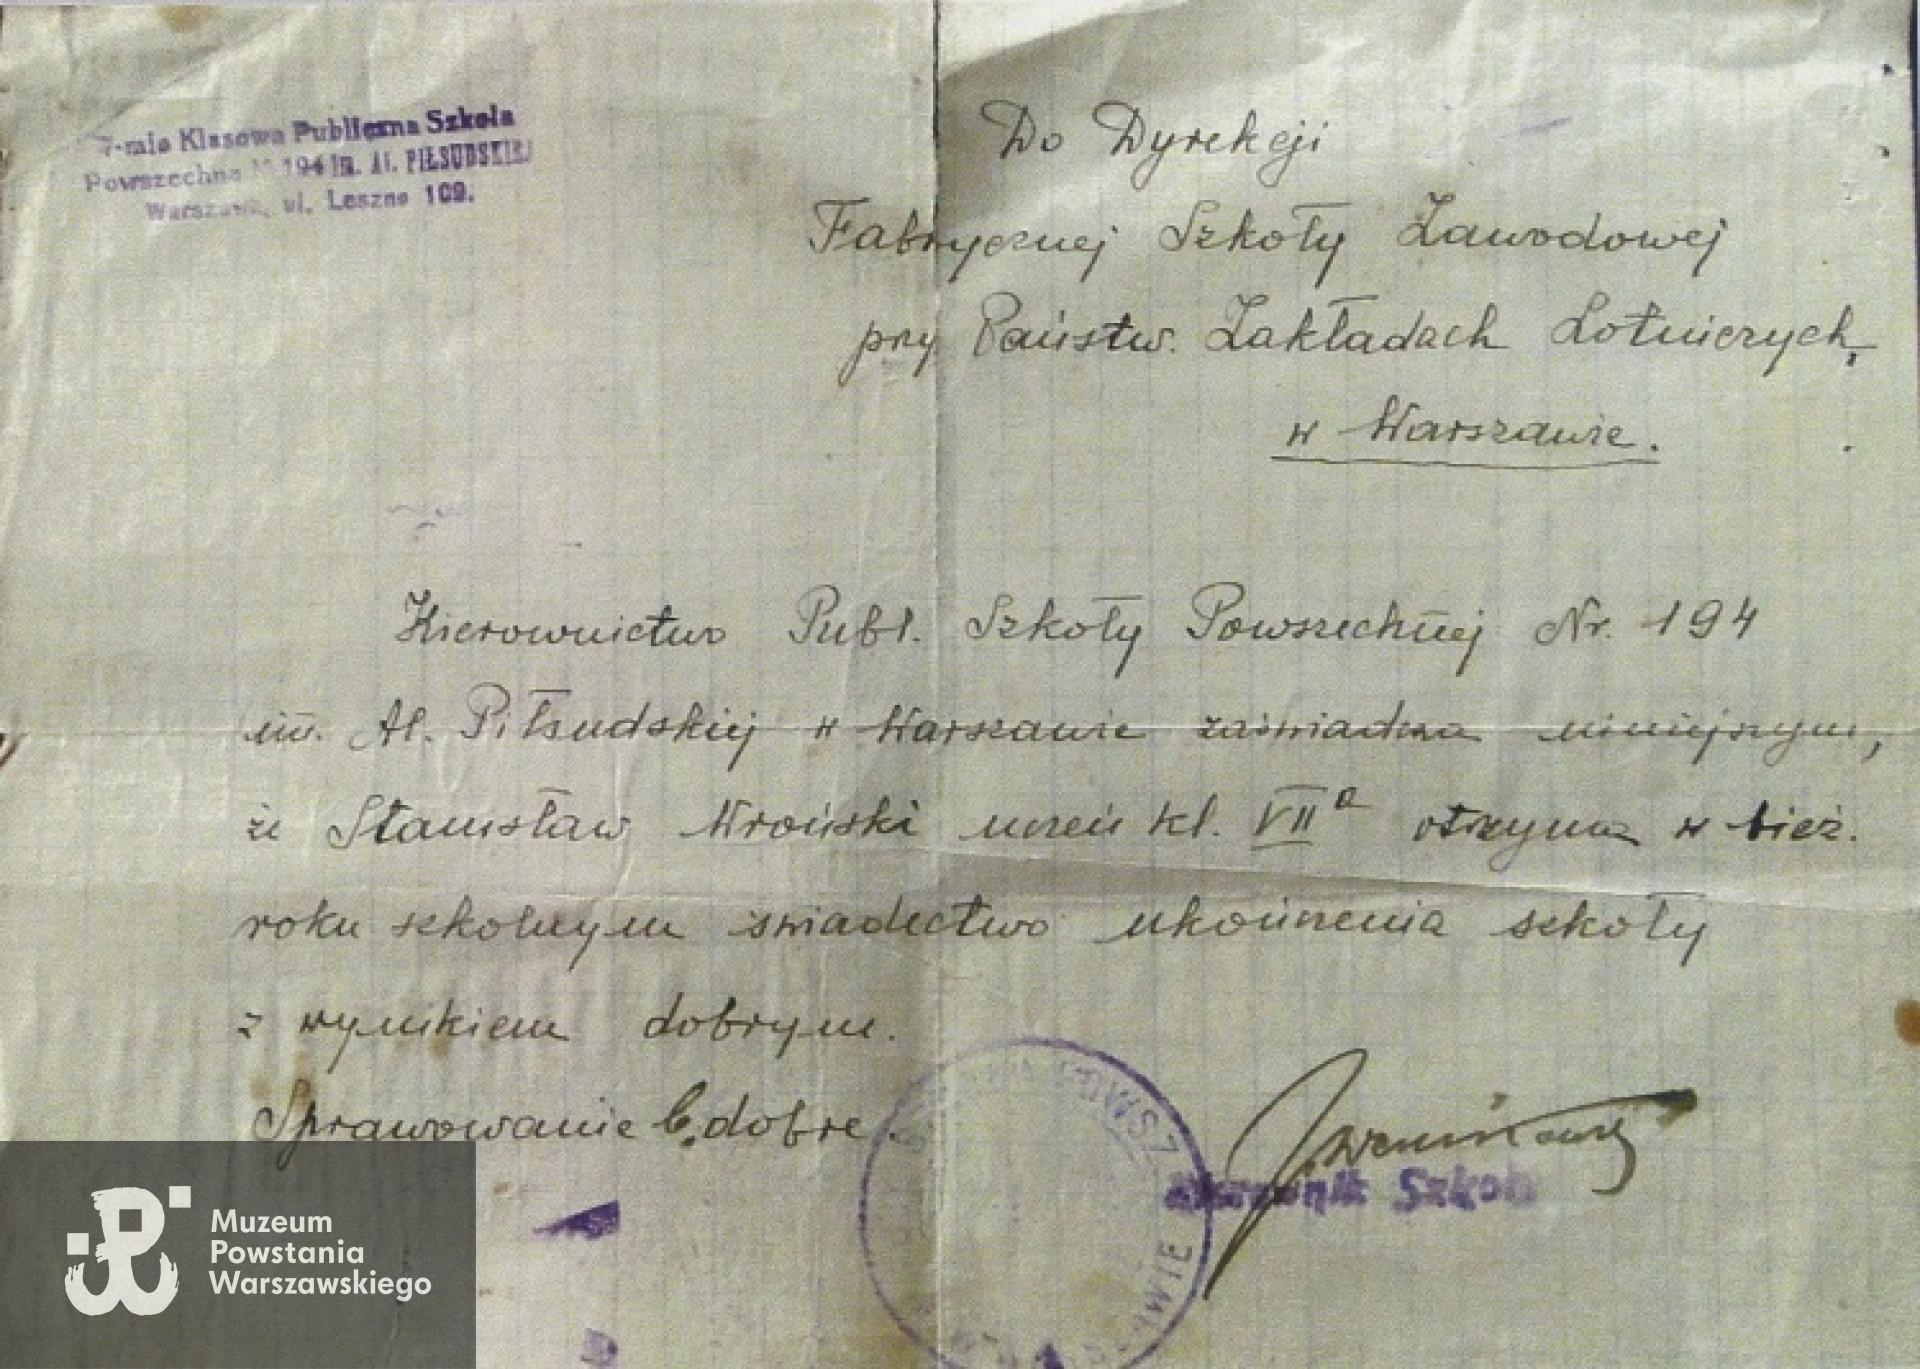 7-mio Klasowa Publiczna Szkoła
Powszechna № 194 im. Al. PIŁSUDSKIEJ
Warszawa, ul. Leszno 109.
Do Dyrekcji
Fabrycznej Szkoły Zawodowej
przy Państw. Zakładach Lotniczych,
w Warszawie.
Kierownictwo Publ. Szkoły Powszechnej Nr. 194
im. Al. Piłsudskiej w Warszawie zaświadcza niniejszym,
że Stanisław Wroński uczeń kl. VII a otrzyma w bież.
roku szkolnym świadectwo ukończenia szkoły
z wynikiem dobrym.
Sprawowanie b. dobre.
POWSZ
Kierownik Szkoły
Muzeum
Powstania
Warszawskiego